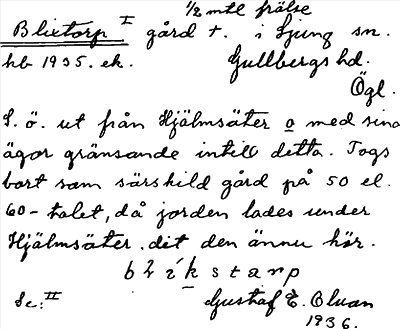 1/2 mtl frälse
Blixtorp I gård †. i Ljung sn.
hb 1935. ek. Gullbergs hd.
Ögl.
S. ö. ut från Hjälmsäter o med sina
ägor gränsande intill detta. Togs
bort som särskild gård på 50 el.
60-talet, då jorden lades under
Hjälmsäter, dit den ännu hör.
Se: II Gustaf E. Oluan
1936.